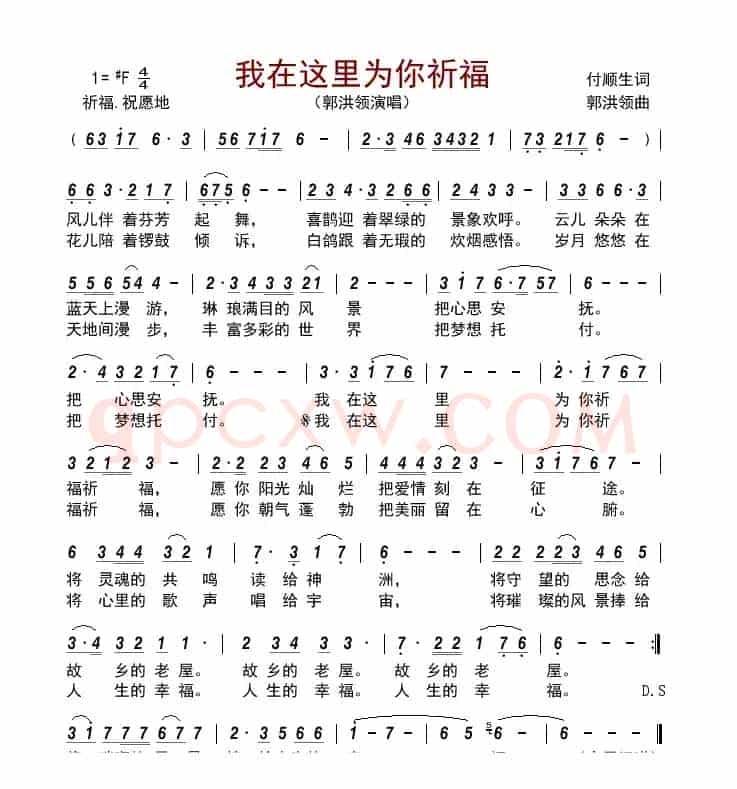 我在这里为你祈福
1=♯F 4/4
付顺生词
祈福.祝愿地
（郭洪领演唱）
郭洪领曲
( 63 i7 6·3 | 56 7i7 6 - | 2·3 46 34321 | 73 2176 - )|
6 6 3·2 1 7 | 675 6 - - | 2 3 4·3 2 6 6 | 2 4 3 3 - | 6 6 6·3
风儿伴 着芬芳 起 舞， 喜鹊迎 着翠绿的 景象欢呼。 云儿 朵朵 在
花儿陪 着锣鼓 倾 诉， 白鸽跟 着无瑕的 炊烟感悟。 岁月 悠悠 在
5 5 5 6 54 4 - | 2·3 4 3 3 3 21 | 2 - - - | 3 1 7 6·7 57 | 6 - - -
蓝天上漫 游， 琳 琅满目的 风 景 把心思 安 抚。
天地间漫 步， 丰 富多彩的 世 界 把梦想 托 付。
2·4 3 2 1 7 | 6 - - - | 3·3 1 7 6 | 7 - - - | 2·1 7 6 7
把 心思安 抚。 我 在这 里 为 你祈
把 梦想托 付。 我 在这 里 为 你祈
gpcxw.COM
3 2 1 2 3 - | 2 2 2 3 3 4 6 5 | 4 4 4 3 2 3 - | 3 1 7 6 7 -
福祈 福， 愿 你 阳光 灿 烂 把爱情 刻 在 征 途。
福祈 福， 愿 你 朝气 蓬 勃 把美丽 留 在 心 腑。
6 3 4 4 3 2 1 | 7· 3 1 7 | 6 - - - | 2 2 2 2 3 4 5 5
将 灵魂的 共 鸣 读 给 神 洲， 将守 望的 思念 给
将 心里的 歌 声 唱 给 宇 宙， 将璀 璨的 风景 捧 给
3·4 3 2 1 | 3·4 4 3 2 3 | 7· 2 2 2 1 7 6 | 6 - - - :‖
故 乡的 老 屋。 故 乡的 老 屋。 故 乡的 老 屋。
人 生的 幸 福。 人 生的 幸 福。 人 生的 幸 福。 D.S